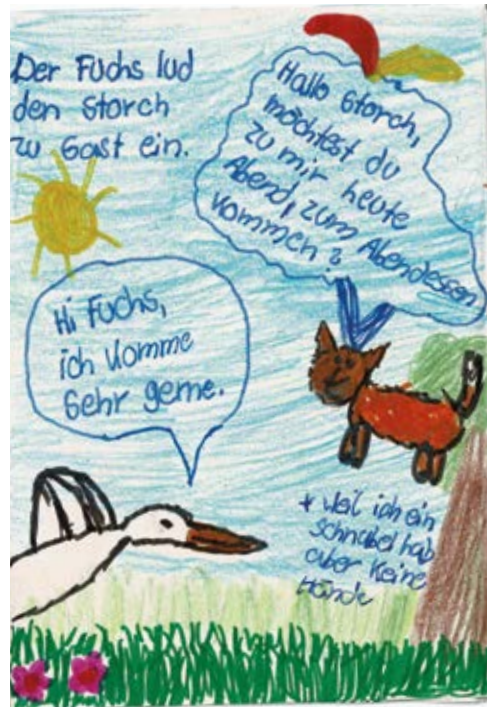 Der Fuchs lud
den Storch
zu Gast ein.
Hallo Storch,
möchtest du
zu mir heute
Abend, zum Abendessen
kommen?
Hi Fuchs,
ich komme
Sehr gerne.
* weil ich ein
schnabel hab
aber keine
Hände